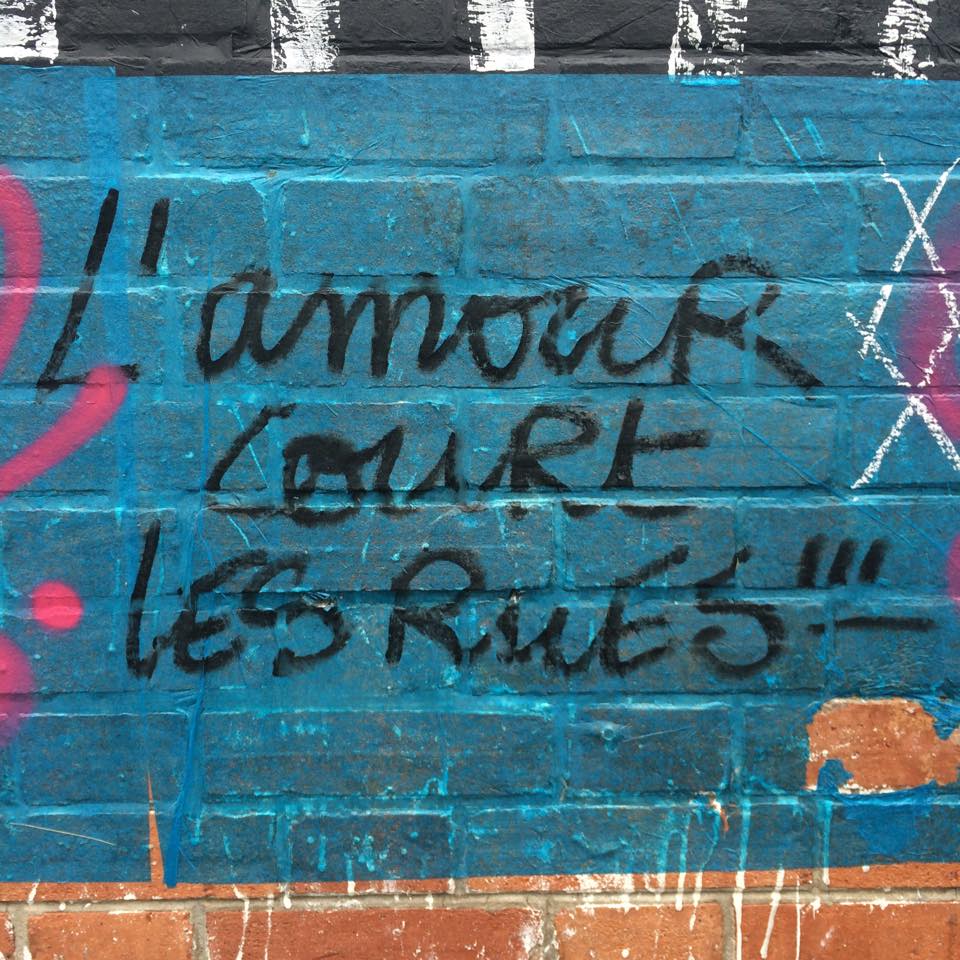 L'amour
court
LES RUES!!!